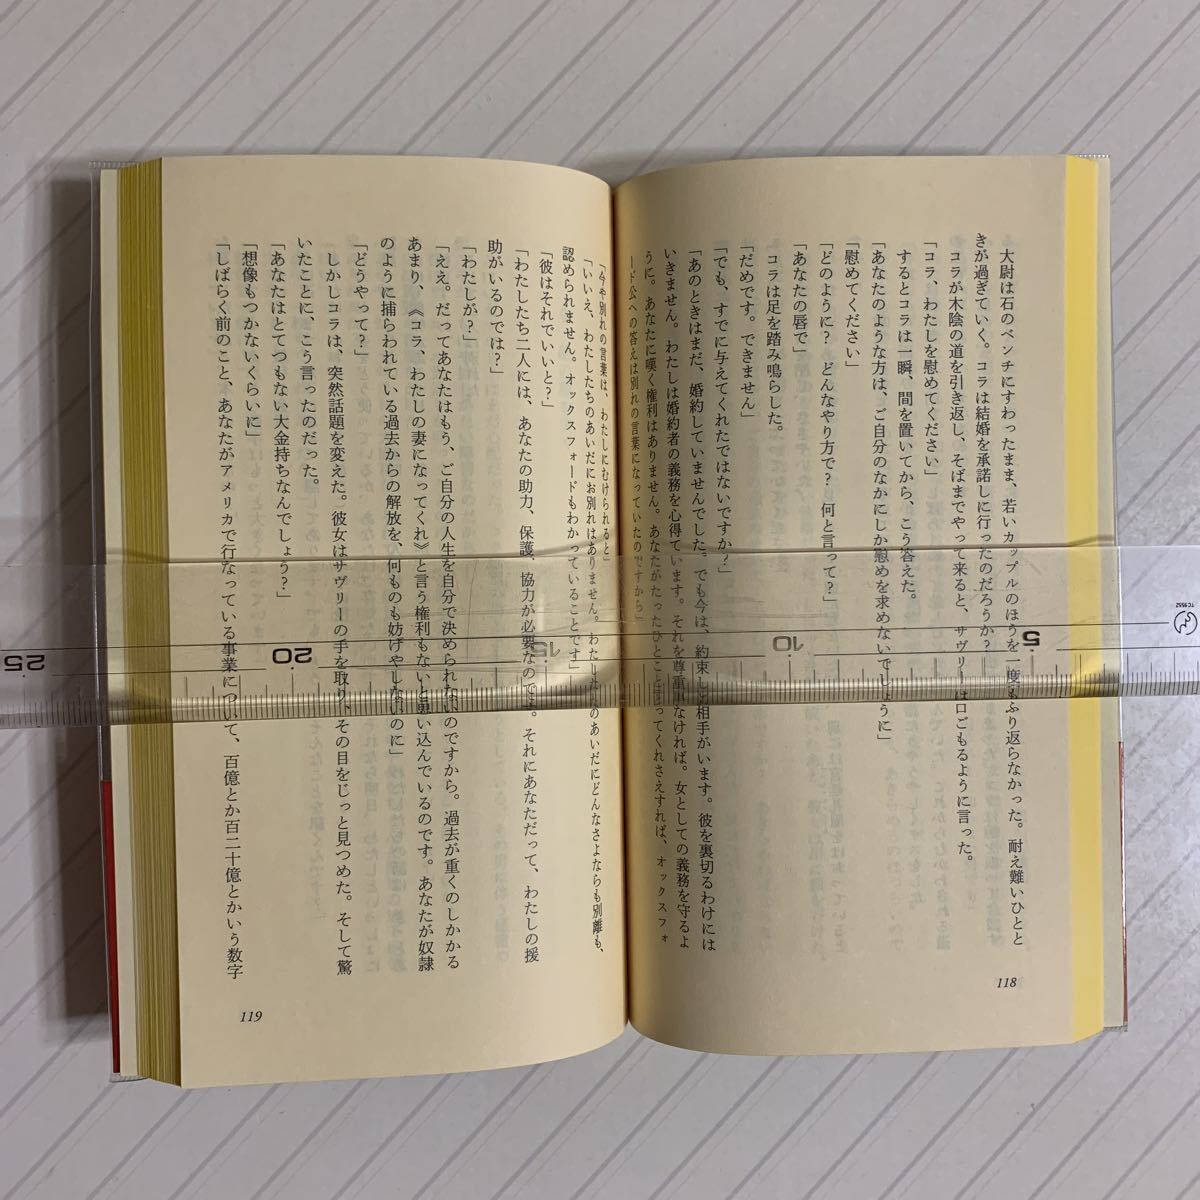 大尉は石のベンチにすわったまま、若いカップルのほうを一度もふり返らなかった。耐え難いひとと
きが過ぎていく。コラは結婚を承諾しに行ったのだろうか?
コラが木陰の道を引き返し、そばまでやって来ると、サヴリーは口ごもるように言った。
「コラ、わたしを慰めてください」
するとコラは一瞬、間を置いてから、こう答えた。
「あなたのような方は、ご自分のなかにしか慰めを求めないでしょうに」
「慰めてください」
「どのように? どんなやり方で? 何と言って?」
「あなたの唇で」
コラは足を踏み鳴らした。
「だめです。できません」
「でも、すでに与えてくれたではないですか?」
「あのときはまだ、婚約していませんでした。でも今は、約束した相手がいます。彼を裏切るわけには
いきません。わたしは婚約者の義務を心得ています。それを尊重しなければ。女としての義務を守るよ
うに。あなたに嘆く権利はありません。あなたがたったひとこと言ってくれさえすれば、オックスフォ
ード公への答えは別れの言葉になっていたのですから」
118
「今や別れの言葉は、わたしにむけられると」
「いいえ、わたしたちのあいだにお別れはありません。わたしたちのあいだにどんなさよならも別離も、
認められません。オックスフォードもわかっていることです」
「彼はそれでいいと?」
「わたしたち二人には、あなたの助力、保護、協力が必要なのです。それにあなただって、わたしの援
助がいるのでは?」
「わたしが?」
「ええ。だってあなたはもう、ご自分の人生を自分で決められないのですから。過去が重くのしかかる
あまり、《コラ、わたしの妻になってくれ》と言う権利もないと思い込んでいるのです。あなたが奴隷
のように捕らわれている過去からの解放を、何ものも妨げやしないのに」
「どうやって?」
しかしコラは、突然話題を変えた。彼女はサヴリーの手を取り、その目をじっと見つめた。そして驚
いたことに、こう言ったのだった。
「あなたはとてつもない大金持ちなんでしょう?」
「想像もつかないくらいに」
「しばらく前のこと、あなたがアメリカで行なっている事業について、百億とか百二十億とかいう数字
119
5
10
15
20
25
TC 9552